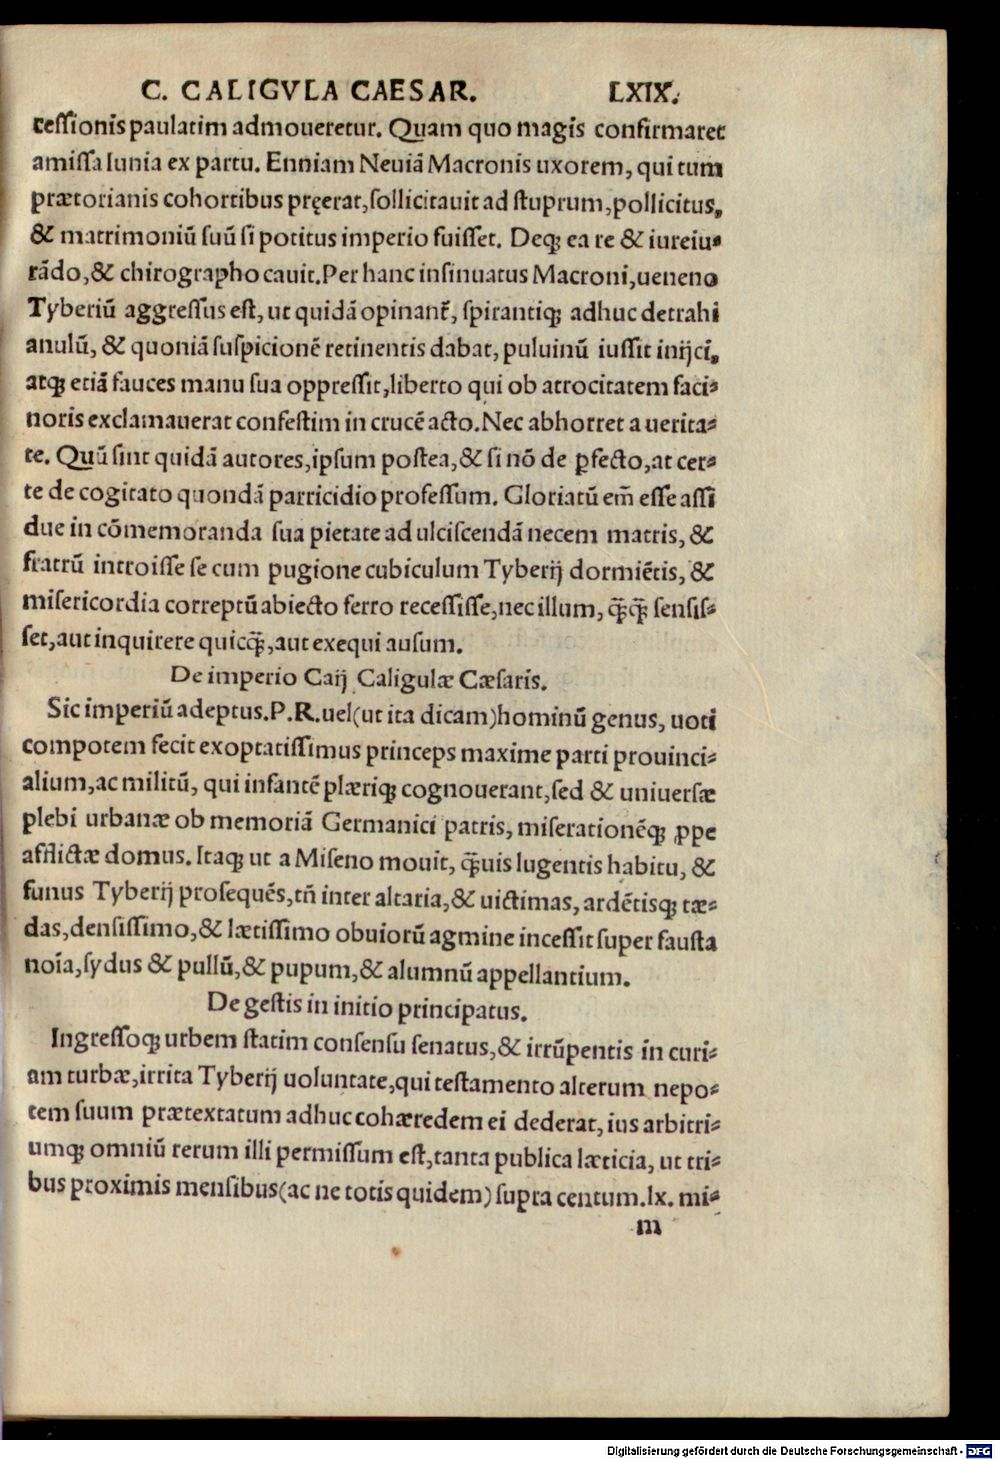 C. CALIGVLA CAESAR. LXIX.
cessionis paulatim admoueretur. Quam quo magis confirmaret
amissa Iunia ex partu. Enniam Neuiā Macronis uxorem, qui tum
prætorianis cohortibus pręerat, sollicitauit ad stuprum, pollicitus,
& matrimoniū suū si potitus imperio fuisset. Deqꝫ ea re & iureiu⸗
rādo, & chirographo cauit. Per hanc insinuatus Macroni, ueneno
Tyberiū aggressus est, ut quidā opinanť, spirantiqꝫ adhuc detrahi
anulū, & quoniā suspicionē retinentis dabat, puluinū iussit inijci,
atqꝫ etiā fauces manu sua oppressit, liberto qui ob atrocitatem faci⸗
noris exclamauerat confestim in crucē acto. Nec abhorret a uerita⸗
te. Quū sint quidā autores, ipsum postea, & si nō de ꝑfecto, at cer⸗
te de cogitato quondā parricidio professum. Gloriatū em̄ esse assi
due in cōmemoranda sua pietate ad ulciscendā necem matris, &
fratrū introisse se cum pugione cubiculum Tyberij dormiētis, &
misericordia correptū abiecto ferro recessisse, nec illum, q̄q̄ sensis⸗
set, aut inquirere quicq̄, aut exequi ausum.
De imperio Caij Caligulæ Cæsaris.
Sic imperiū adeptus. P. R. uel (ut ita dicam) hominū genus, uoti
compotem fecit exoptatissimus princeps maxime parti prouinci⸗
alium, ac militū, qui infantē plæriqꝫ cognouerant, sed & uniuersæ
plebi urbanæ ob memoriā Germanici patris, miserationēqꝫ ꝓpe
afflictæ domus. Itaqꝫ ut a Miseno mouit, q̄uis lugentis habitu, &
funus Tyberij prosequēs, tn̄ inter altaria, & uictimas, ardētisqꝫ tæ⸗
das, densissimo, & lætissimo obuiorū agmine incessit super fausta
noīa, sydus & pullū, & pupum, & alumnū appellantium.
De gestis in initio principatus.
Ingressoqꝫ urbem statim consensu senatus, & irrūpentis in curi⸗
am turbæ, irrita Tyberij uoluntate, qui testamento alterum nepo⸗
tem suum prætextatum adhuc cohæredem ei dederat, ius arbitri⸗
umqꝫ omniū rerum illi permissum est, tanta publica læticia, ut tri⸗
bus proximis mensibus (ac ne totis quidem) supra centum. lx. mi⸗
m
Digitalisierung gefördert durch die Deutsche Forschungsgemeinschaft - DFG